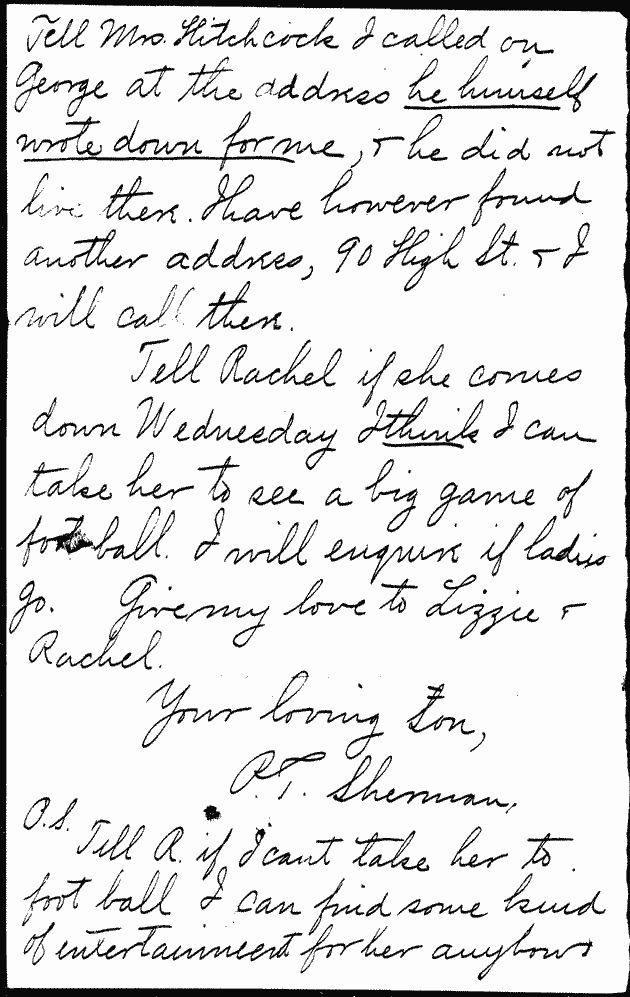 Tell Mrs. Hitchcock I called on
George at the address he himself
wrote down for me, & he did not
live there. I have however found
another address, 90 High St. & I
will call there.
Tell Rachel if she comes
down Wednesday I think I can
take her to see a big game of
foot ball. I will enquire if ladies
go. Give my love to Lizzie &
Rachel.
Your loving Son,
P.T. Sherman,
P.S.
Tell R. if I cant take her to
foot ball I can find some kind
of entertainment for her anyhow